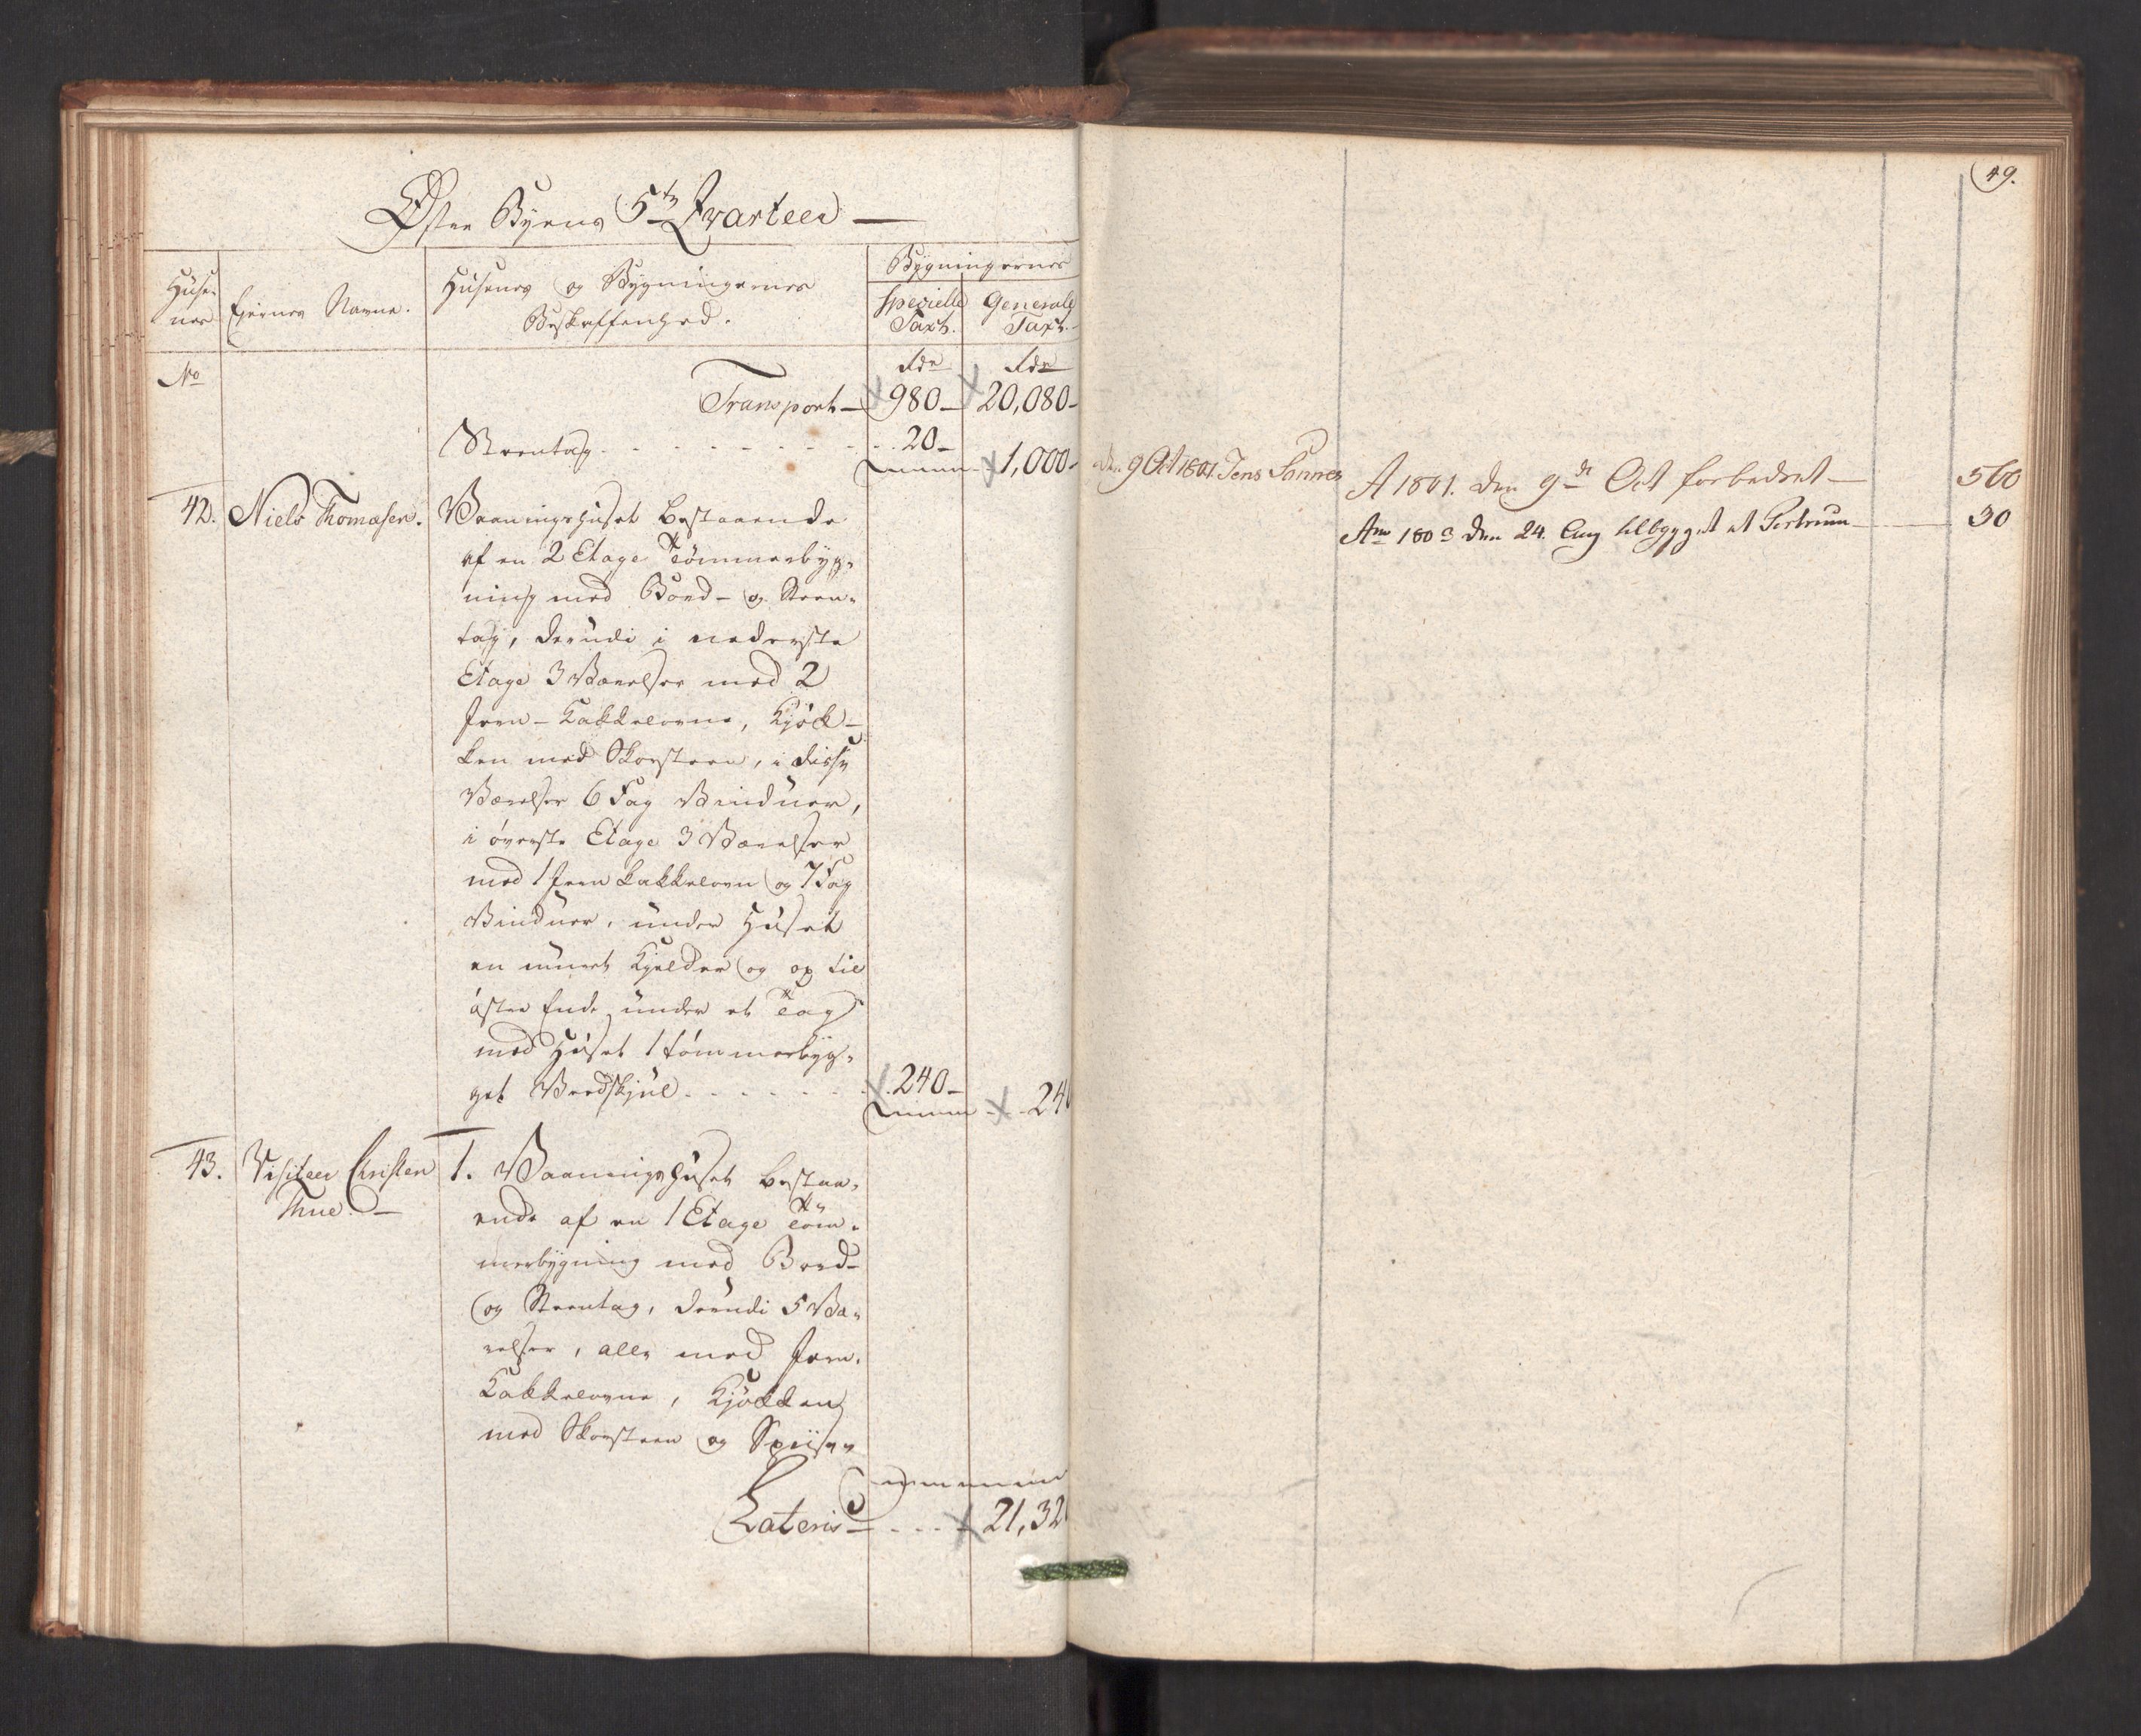 Øster Byens 5te Qvarteer —
Huse-
nes
Eiernes Navne.
Husenes og Bygningernes
Beskaffenhed.
Bygningernes
Specielle
Taxt.
Generale
Taxt.
No
Rdr
Rdr
Transport — 980 — 20,080 —
Steentag . . . . . . . 20 —
1,000 —
42. Niels Thomasen. Vaaningshuset bestaaende
af en 2 Etage Tømmerbyg-
ning med Bord- og Steen-
tag, derudi i nederste
Etage 3 Værelser med 2
Jern-Kakkelovne, Kjøk-
ken med Skorsteen, i disse
Værelser 6 Fag Vinduer,
i øverste Etage 3 Værelser
med 1 Jern Kakkelovn og 7 Fag
Vinduer, under Huset
en muret Kjelder og op til
østre Ende under et Tag
med Huset 1 tømmerbyg-
get Vedskjul . . . . . . 240 —
24
43. Visiteer Christen
Thue. —
1. Vaaningshuset bestaa-
ende af en 1 Etage Töm-
merbygning med Bord-
og Steentag, derudi 5 Væ-
relser, alle med Jern-
Kakkelovne, Kjøkken
med Skorsteen og Spiise-
Lateris — . . . 21,32
49.
den 9 Oct 1801. Jens Sønnes
A 1801. den 9de Oct forbedret — 560
Ano 1803 den 24. Aug tilbygget et — 30